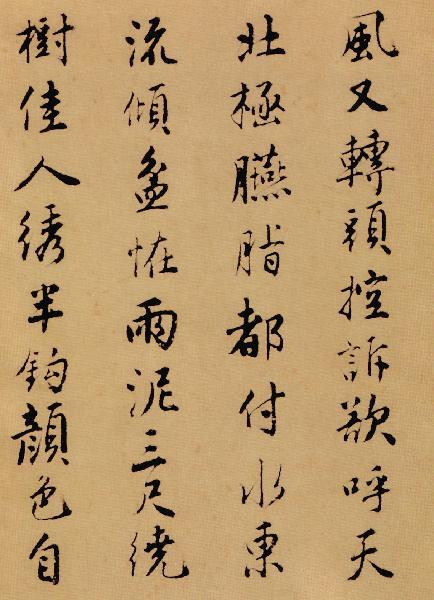 風又轉頭控訴欲呼天
北極臙脂都付水東
流傾盆恠雨泥三尺繞
樹佳人綉半鈎顔色自